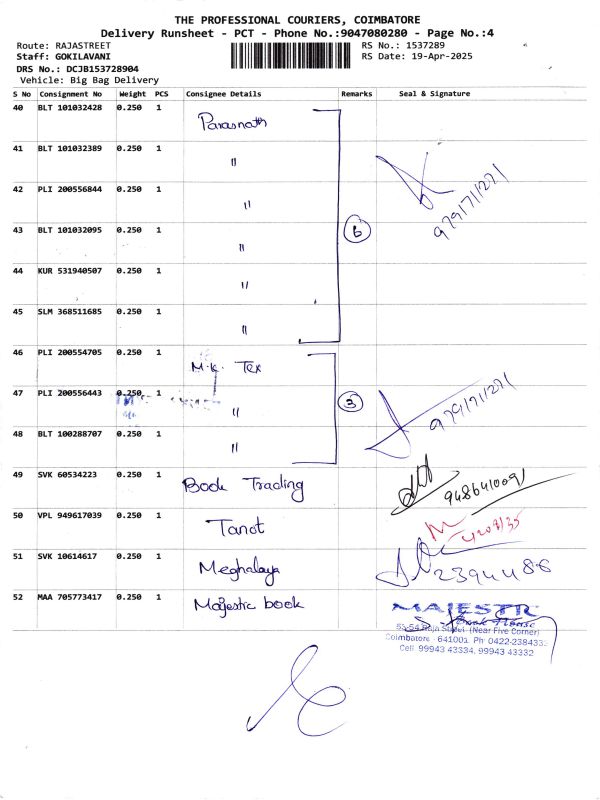 THE PROFESSIONAL COURIERS, COIMBATORE
Delivery Runsheet - PCT - Phone No.:9047080280 - Page No.:4
Route: RAJASTREET
RS No.: 1537289
Staff: GOKILAVANI
RS Date: 19-Apr-2025
DRS No.: DCJB153728904
Vehicle: Big Bag Delivery
S No Consignment No Weight PCS Consignee Details Remarks Seal & Signature
40 BLT 101032428 0.250 1 Parasnath
41 BLT 101032389 0.250 1 "
42 PLI 200556844 0.250 1 "
9791711271
43 BLT 101032095 0.250 1 " 6
44 KUR 531940507 0.250 1 "
45 SLM 368511685 0.250 1 "
46 PLI 200554705 0.250 1 M.K. Tex
47 PLI 200556443 0.250 1 " 3 9791711271
48 BLT 100288707 0.250 1 "
49 SVK 60534223 0.250 1 Book Trading
50 VPL 949617039 0.250 1 Tanot
51 SVK 10614617 0.250 1 Meghalaya 2394486
52 MAA 705773417 0.250 1 Majestic book MAJESTIC
Book House
53-54 Raja Street (Near Five Corner)
Coimbatore - 641001. Ph: 0422-2384332
Cell: 99943 43334, 99943 43332